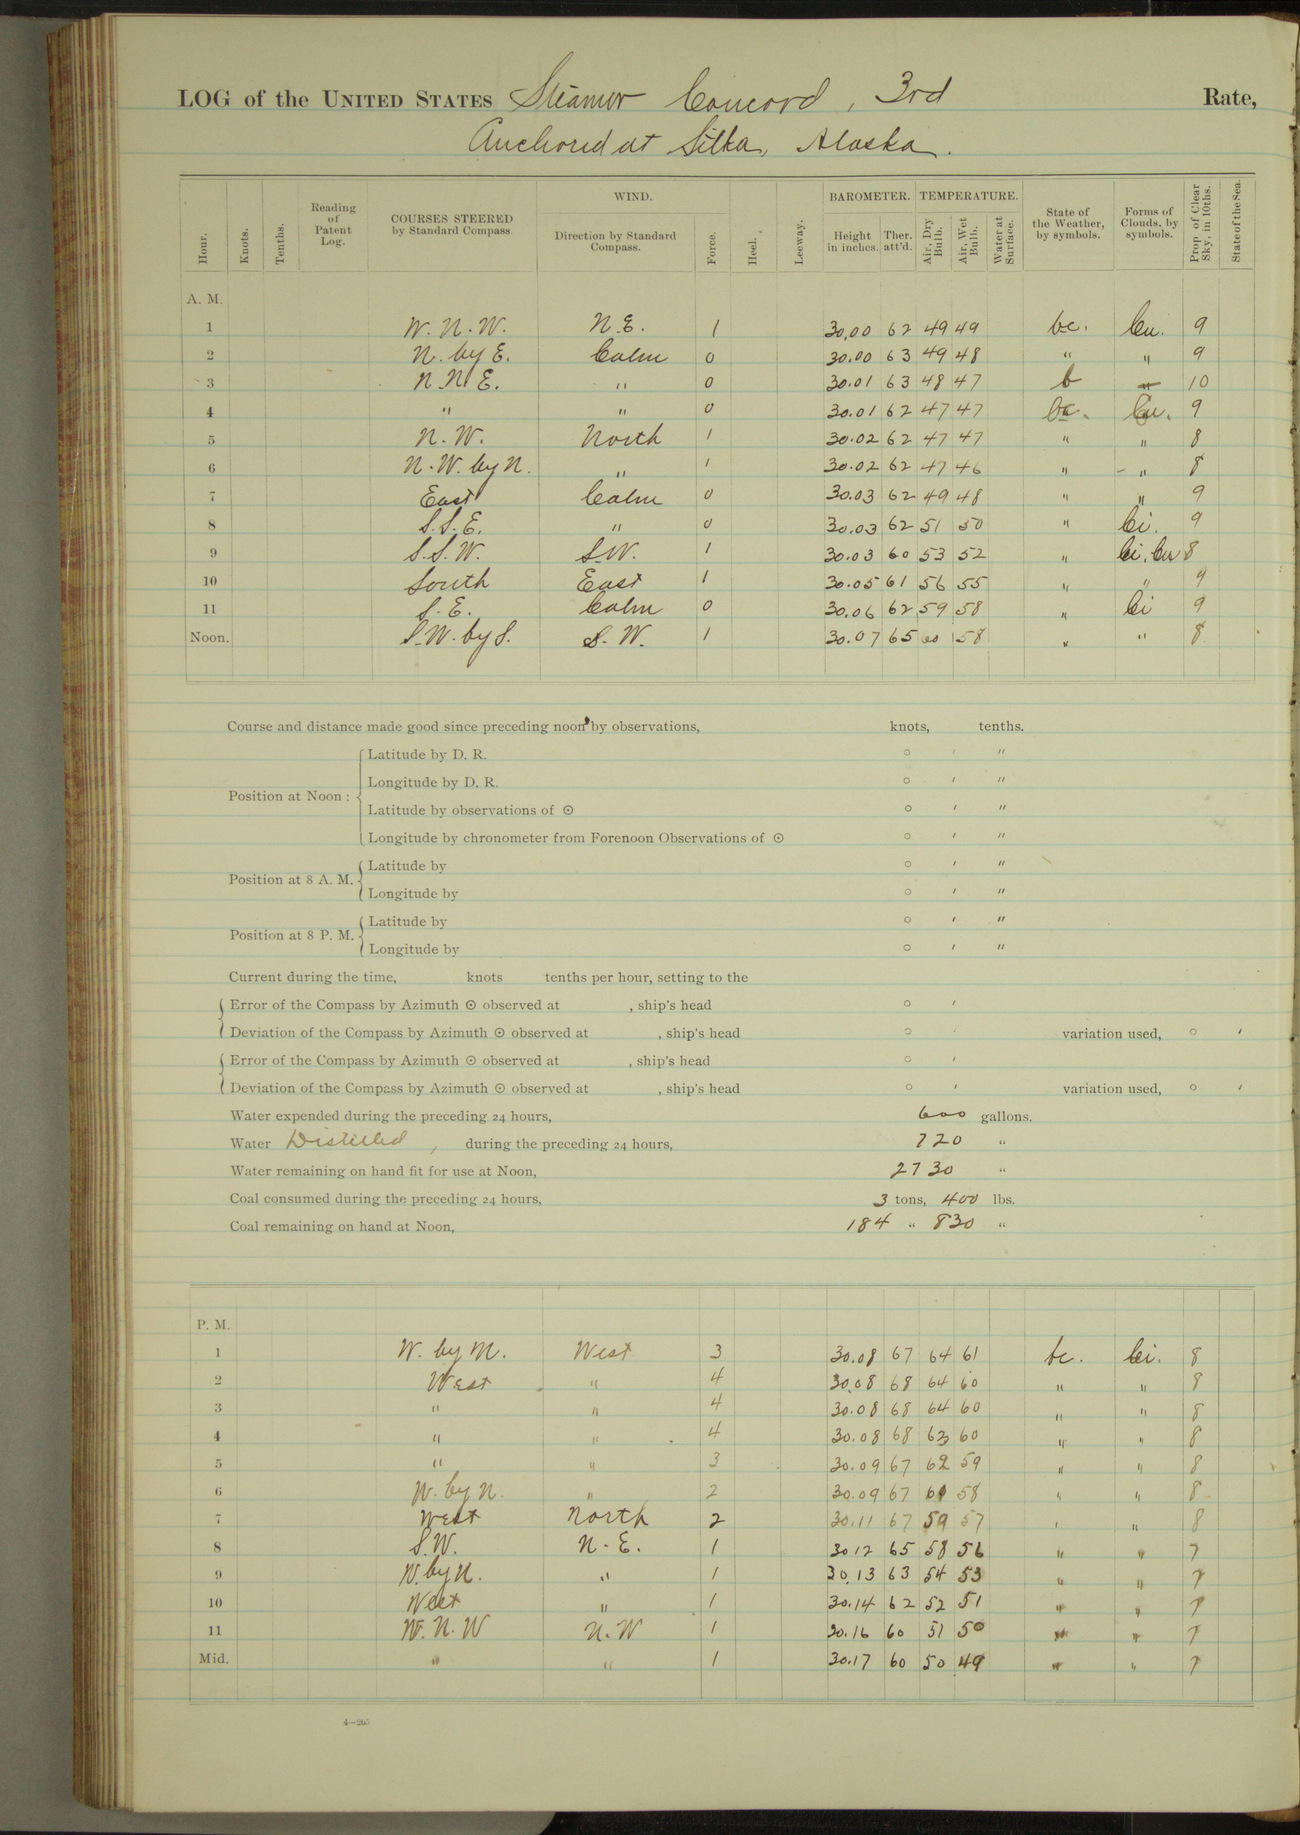 LOG of the UNITED STATES Steamer Concord, 3rd Rate,
Anchored at Sitka, Alaska.
Hour. Knots. Tenths. Reading of Patent Log. COURSES STEERED by Standard Compass. WIND. Direction by Standard Compass. Force. Heel. Leeway. BAROMETER. Height in inches. Ther. att'd. TEMPERATURE. Air, Dry Bulb. Air, Wet Bulb. Water at Surface. State of the Weather, by symbols. Forms of Clouds, by symbols. Prop. of Clear Sky, in 10ths. State of the Sea.
A. M.
1 W.N.W. N.E. 1 30.00 62 49 49 bc. Cu. 9
2 N. by E. Calm 0 30.00 63 49 48 " " 9
3 N.N.E. " 0 30.01 63 48 47 b — 10
4 " " 0 30.01 62 47 47 bc. Cu. 9
5 N.W. North 1 30.02 62 47 47 " " 8
6 N.W. by N. " 1 30.02 62 47 46 " " 8
7 East Calm 0 30.03 62 49 48 " " 9
8 S.S.E. " 0 30.03 62 51 50 " Ci. 9
9 S.S.W. S.W. 1 30.03 60 53 52 " Ci. Cu 8
10 South East 1 30.05 61 56 55 " " 9
11 S.E. Calm 0 30.06 62 59 58 " Ci 9
Noon. S.W. by S. S.W. 1 30.07 65 60 58 " " 8
Course and distance made good since preceding noon by observations, knots, tenths.
Position at Noon: Latitude by D. R. ° ′ ″
Longitude by D. R. ° ′ ″
Latitude by observations of ☉ ° ′ ″
Longitude by chronometer from Forenoon Observations of ☉ ° ′ ″
Position at 8 A. M. Latitude by ° ′ ″
Longitude by ° ′ ″
Position at 8 P. M. Latitude by ° ′ ″
Longitude by ° ′ ″
Current during the time, knots tenths per hour, setting to the
Error of the Compass by Azimuth ☉ observed at , ship's head ° ′
Deviation of the Compass by Azimuth ☉ observed at , ship's head ° ′ variation used, ° ′
Error of the Compass by Azimuth ☉ observed at , ship's head ° ′
Deviation of the Compass by Azimuth ☉ observed at , ship's head ° ′ variation used, ° ′
Water expended during the preceding 24 hours, 600 gallons.
Water Distilled, during the preceding 24 hours, 720 "
Water remaining on hand fit for use at Noon, 2730 "
Coal consumed during the preceding 24 hours, 3 tons, 400 lbs.
Coal remaining on hand at Noon, 184 " 830 "
P. M.
1 W. by N. West 3 30.08 67 64 61 bc. Ci. 8
2 West " 4 30.08 68 64 60 " " 8
3 " " 4 30.08 68 64 60 " " 8
4 " " 4 30.08 68 63 60 " " 8
5 " " 3 30.09 67 62 59 " " 8
6 W. by N. " 2 30.09 67 61 58 " " 8
7 West North 2 30.11 67 59 57 " " 8
8 S.W. N.E. 1 30.12 65 58 56 " " 7
9 W. by N. " 1 30.13 63 54 53 " " 7
10 West " 1 30.14 62 52 51 " " 7
11 W.N.W N.W 1 30.16 60 51 50 " " 7
Mid. " " 1 30.17 60 50 49 " " 7
4—265